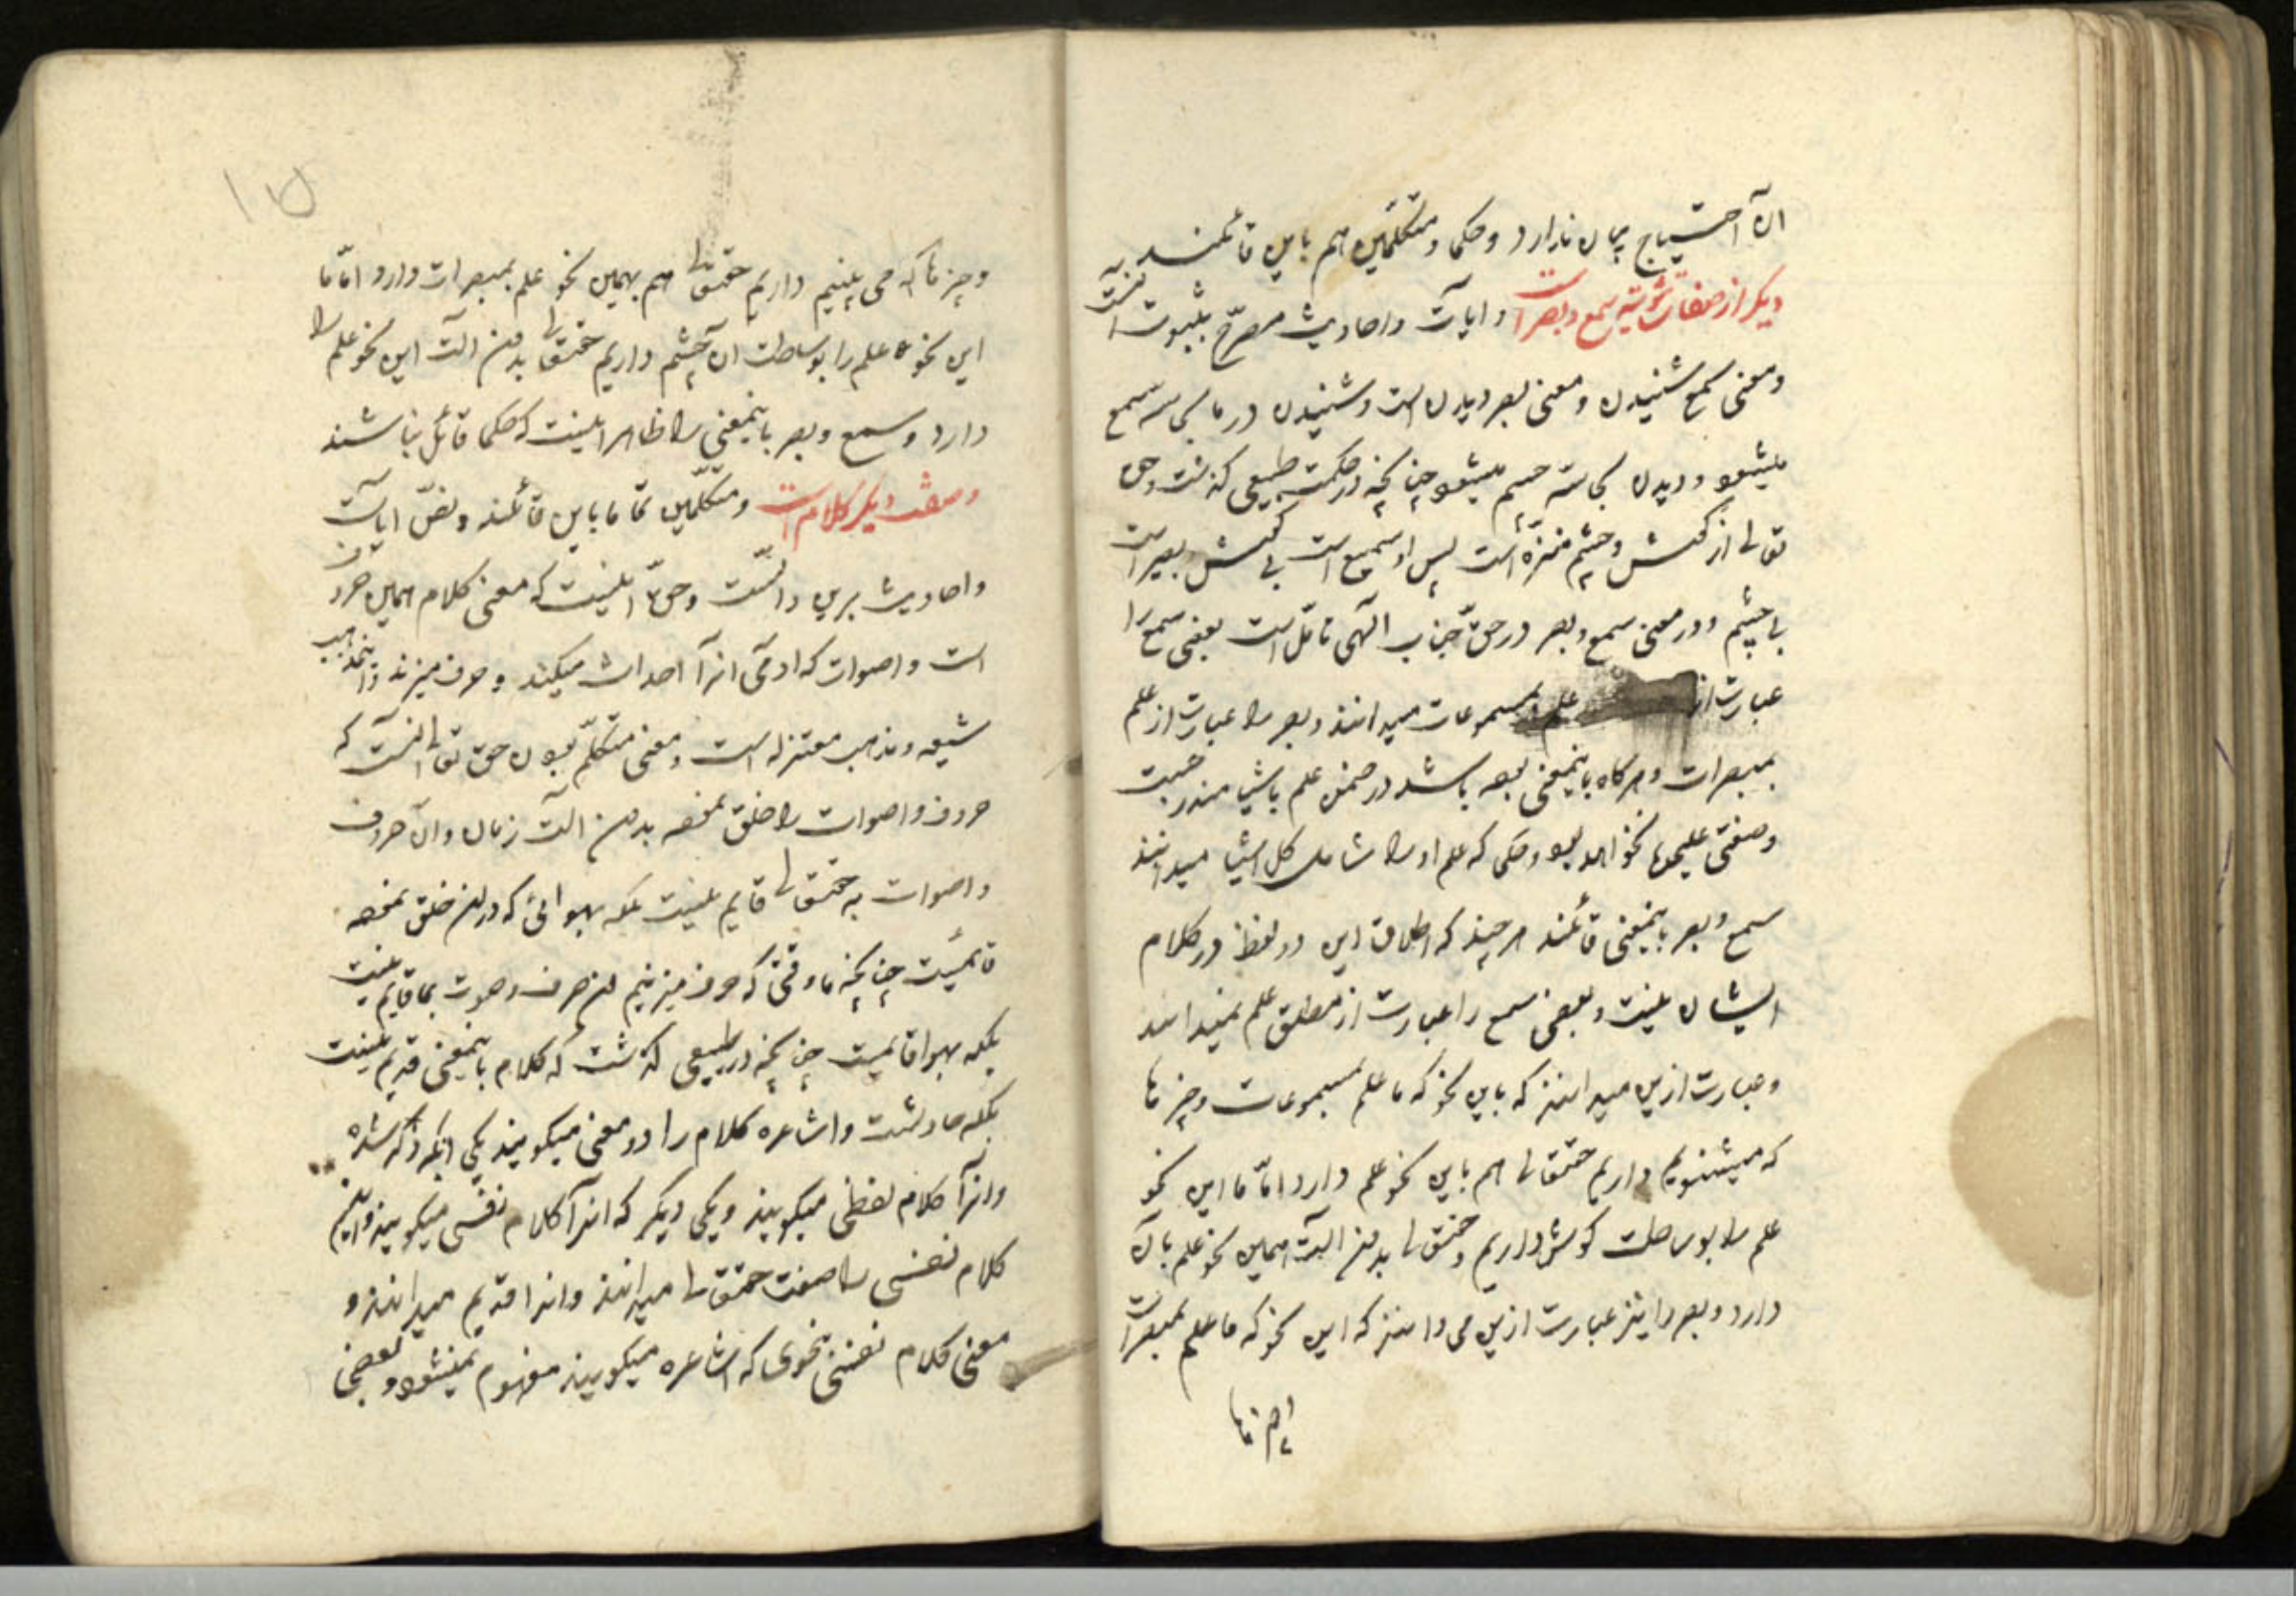 آن احتیاج بمکان ندارد و حکما و متکلمین هم باین قائلند
دیگر از صفات ثبوتیه سمع و بصر است و ایات و احادیث مصرح بثبوت
و معنی سمع شنیدن و معنی بصر دیدن است و شنیدن در ما بحاسه سمع
میشود و دیدن بحاسه چشم میشود چنانچه در حکمت طبیعی گذشت و حق
تعالی از گوش و چشم منزه است پس او سمیع است بی گوش و بصیر است
بی چشم و در معنی سمع و بصر در حق جناب الهی تامل است بعضی سمع را
عبارت از علم بمسموعات میدانند و بصر را عبارت از علم
بمبصرات و هرگاه باینمعنی بوده باشد در ضمن علم باشیا مندرجست
و صفتی علیحده نخواهد بود و حکما که علم او را شامل کل اشیا میدانند
سمع و بصر باینمعنی قائلند هر چند که اطلاق این دو لفظ در کلام
ایشان نیست و بعضی سمع را عبارت از مطلق علم نمیدانند
و عبارت ازین میدانند که باین نحو که ما علم بمسموعات و چیزها
که میشنویم داریم حقتعالی هم باین نحو علم دارد اما ما این نحو
علم را بوساطت گوش داریم و حقتعالی بدون آلت همین نحو علم بآن
دارد و بصر را نیز عبارت ازین می دانند که این نحو که ما علم بمبصرات
و چیزها
۱۵
و چیزها که می بینیم داریم حقتعالی هم بهمین نحو علم بمبصرات دارد اما ما
این نحو علم را بوساطت آن چشم داریم حقتعالی بدون الت این نحو علم را
دارد و سمع و بصر باینمعنی را ظاهرا نیست که حکما قائل نباشند
و صفت دیگر کلام است و متکلمین تماما باین قائلند و نص ایات
و احادیث برین دالست و حق اینست که معنی کلام همین حروف
است و اصوات که ادمی انرا احداث میکند و حرف میزند و اینمذهب
شیعه و مذهب معتزله است و معنی متکلم بودن حق تعالی انست که
حروف و اصوات را خلق نموده بدون الت زبان و ان حروف
و اصوات به حقتعالی قایم نیست بلکه بهوائی که در ان خلق نموده
قائمست چنانچه ما وقتی که حرف میزنیم ان حرف و صوت بما قایم نیست
بلکه بهوا قائمست چنانچه در طبیعی گذشت که کلام باینمعنی قدیم نیست
بلکه حادثست و اشاعره کلام را دو معنی میگویند یکی انکه ذکر شده
و انرا کلام لفظی میگویند و یکی دیگر که انرا کلام نفسی میگویند و این
کلام نفسی را صفت حقتعالی میدانند و انرا قدیم میدانند و
معنی کلام نفسی بنحوی که اشاعره میگویند مفهوم نمیشود و بعضی